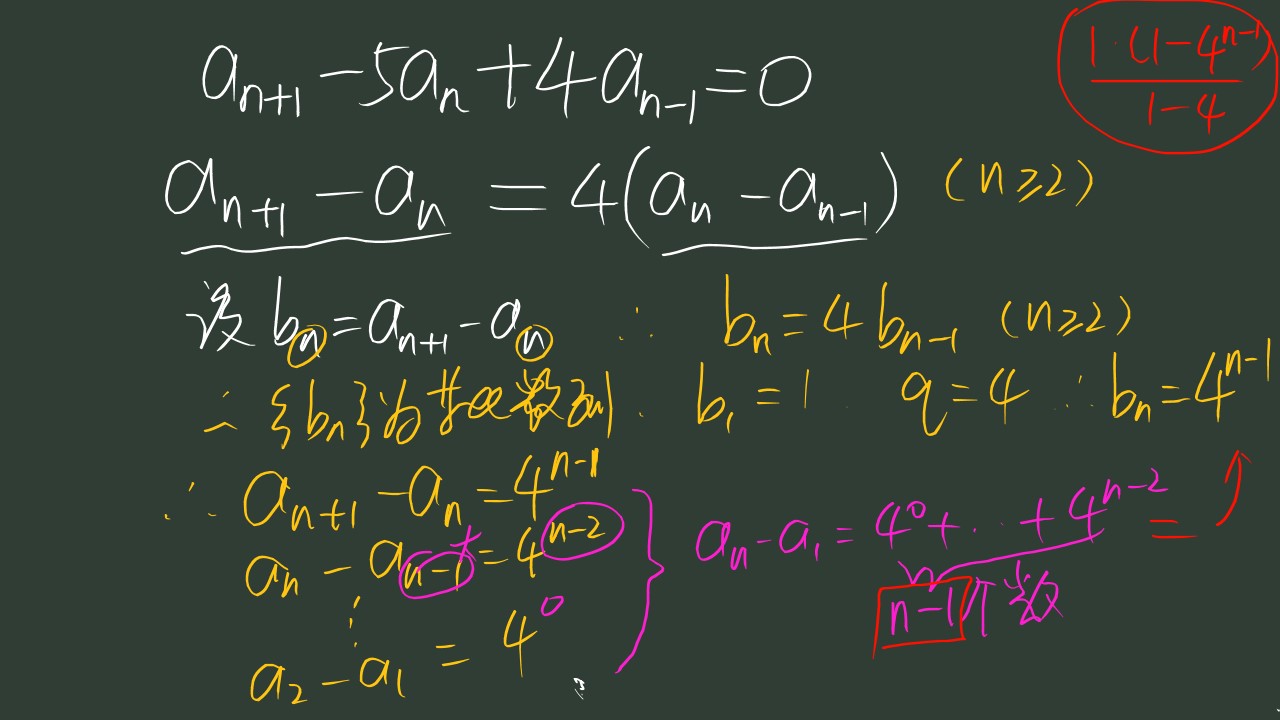 aₙ₊₁ - 5aₙ + 4aₙ₋₁ = 0
aₙ₊₁ - aₙ = 4(aₙ - aₙ₋₁) (n≥2)
设 bₙ = aₙ₊₁ - aₙ ∴ bₙ = 4bₙ₋₁ (n≥2)
∴ {bₙ}为等比数列. b₁ = 1. q = 4 ∴ bₙ = 4ⁿ⁻¹
∴ aₙ₊₁ - aₙ = 4ⁿ⁻¹
aₙ - aₙ₋₁ = 4ⁿ⁻²
⋮
a₂ - a₁ = 4⁰
} aₙ - a₁ = 4⁰ + ... + 4ⁿ⁻² =
n-1个数
1·(1-4ⁿ⁻¹)
1-4